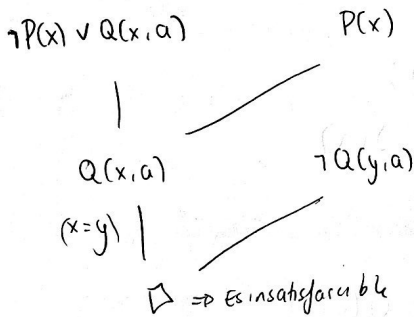 ¬P(x) ∨ Q(x,a) P(x)
Q(x,a) ¬Q(y,a)
(x=y)
□ ⇒ Es insatisfacible